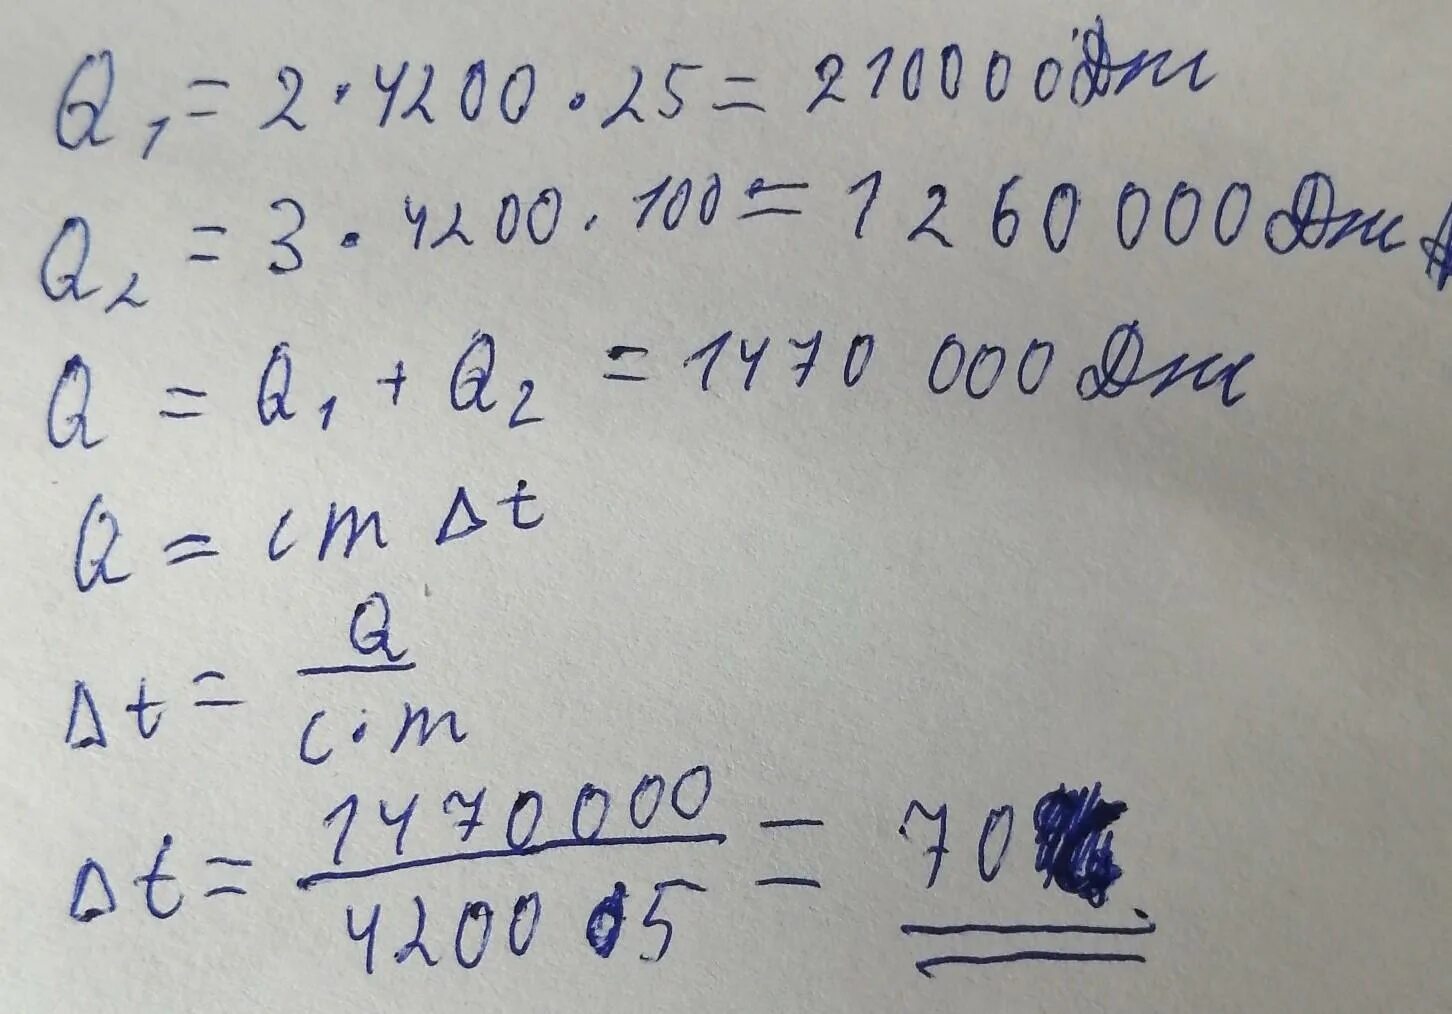 Q₁ = 2 · 4200 · 25 = 210000 Дж
Q₂ = 3 · 4200 · 100 = 1 260 000 Дж
Q = Q₁ + Q₂ = 1470 000 Дж
Q = cm Δt
Δt = Q / c·m
Δt = 1470000 / 4200·5 = 70